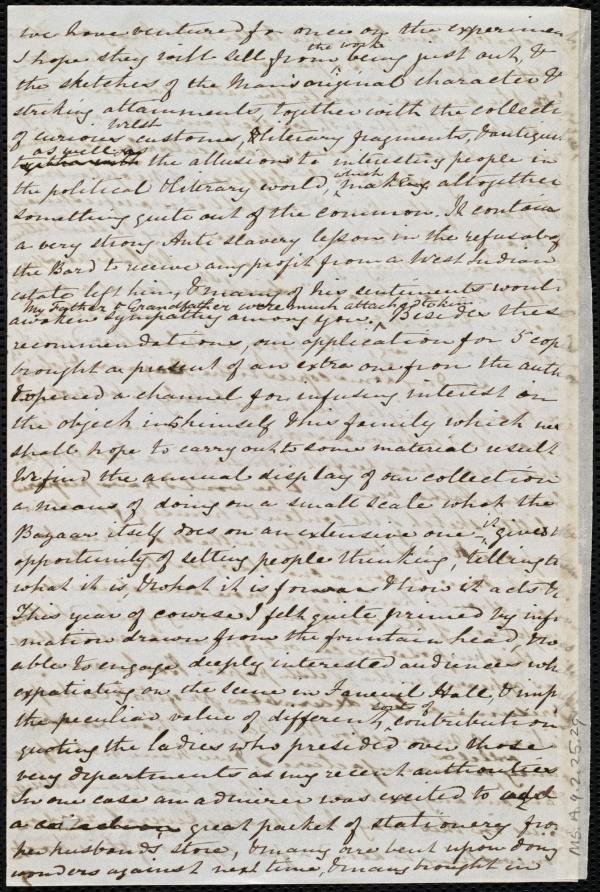 we have ventured for once on the experimen
I hope they will sell from the work being just out, &
the sketches of the Man's original character &
striking attainments, together with the collecti
of curious Welsh customs, & literary fragments, & antiquit
as well as the allusions to interesting people in
the political & literary world, which making altogether
something quite out of the common. It contains
a very strong Anti slavery lesson in the refusal of
the Bard to receive any profit from a West Indian
estate left him & many of his sentiments would
awaken sympathy among you. My Father & Grandfather were much attached to him. Besides thes
recommendations, our application for 5 cop
brought a present of an extra one from the auth
& opened a channel for infusing interest in
the object into himself & his family which we
shall hope to carry out to some material result
We find the annual display of our collection
a means of doing on a small scale what the
Bazaar itself does on an extensive one - it gives
opportunity of setting people thinking, telling
what it is & what it is for & how it acts &
This year of course I felt quite primed by infor
mation drawn from the fountain head, &
able to engage deeply interested audiences wh
expatiating on the scene in Faneuil Hall, & imp
the peculiar value of different sorts of contribution
quoting the ladies who presided over those
very departments as my recent authorities
In one case an admirer was excited to add
a great packet of stationery from
her husbands store, & many are bent upon doing
wonders against next time, & many brought in
MS.A.9.2.25.29